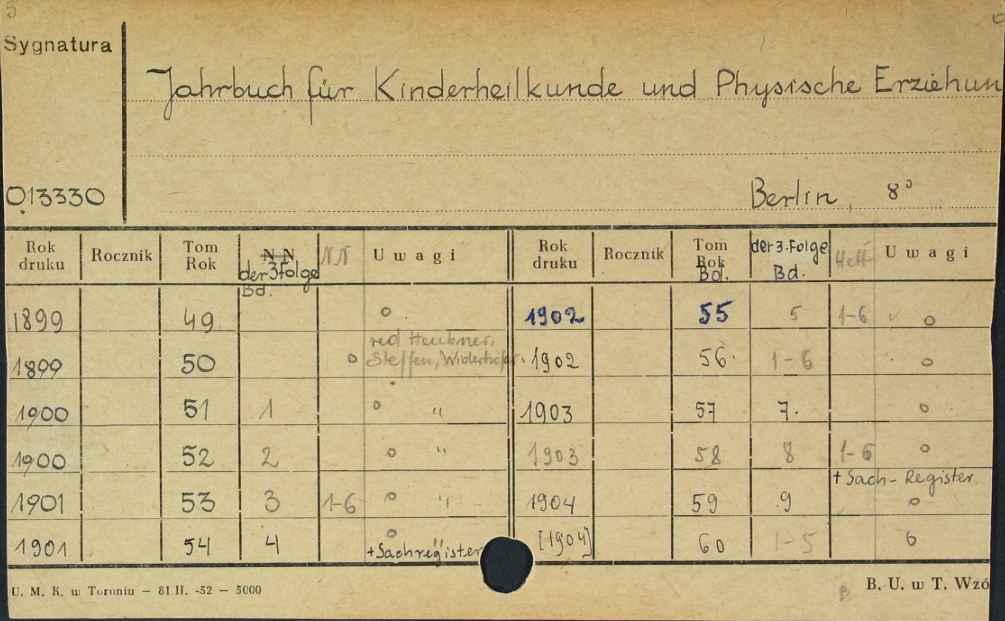 5
Sygnatura
Jahrbuch für Kinderheilkunde und Physische Erziehun
013330
Berlin, 8°
Rok druku Rocznik Tom Rok N N der 3 folge Bd. NN Uwagi Rok druku Rocznik Tom Rok Bd. der 3. Folge Bd. Heft Uwagi
1899 49 o 1902 55 5 1-6 o
1899 50 o red Heubner, Steffen, Widerhofer. 1902 56. 1-6 o
1900 51 1 o " 1903 57 7. o
1900 52 2 o " 1903 58 8 1-6 o
1901 53 3 1-6 o " 1904 59 9 + Sach-Register. o
1901 54 4 o " + Sachregister [1904] 60 1-5 6
U. M. K. w Toruniu — 81 II. -52 — 5000
B. U. w T. Wzó